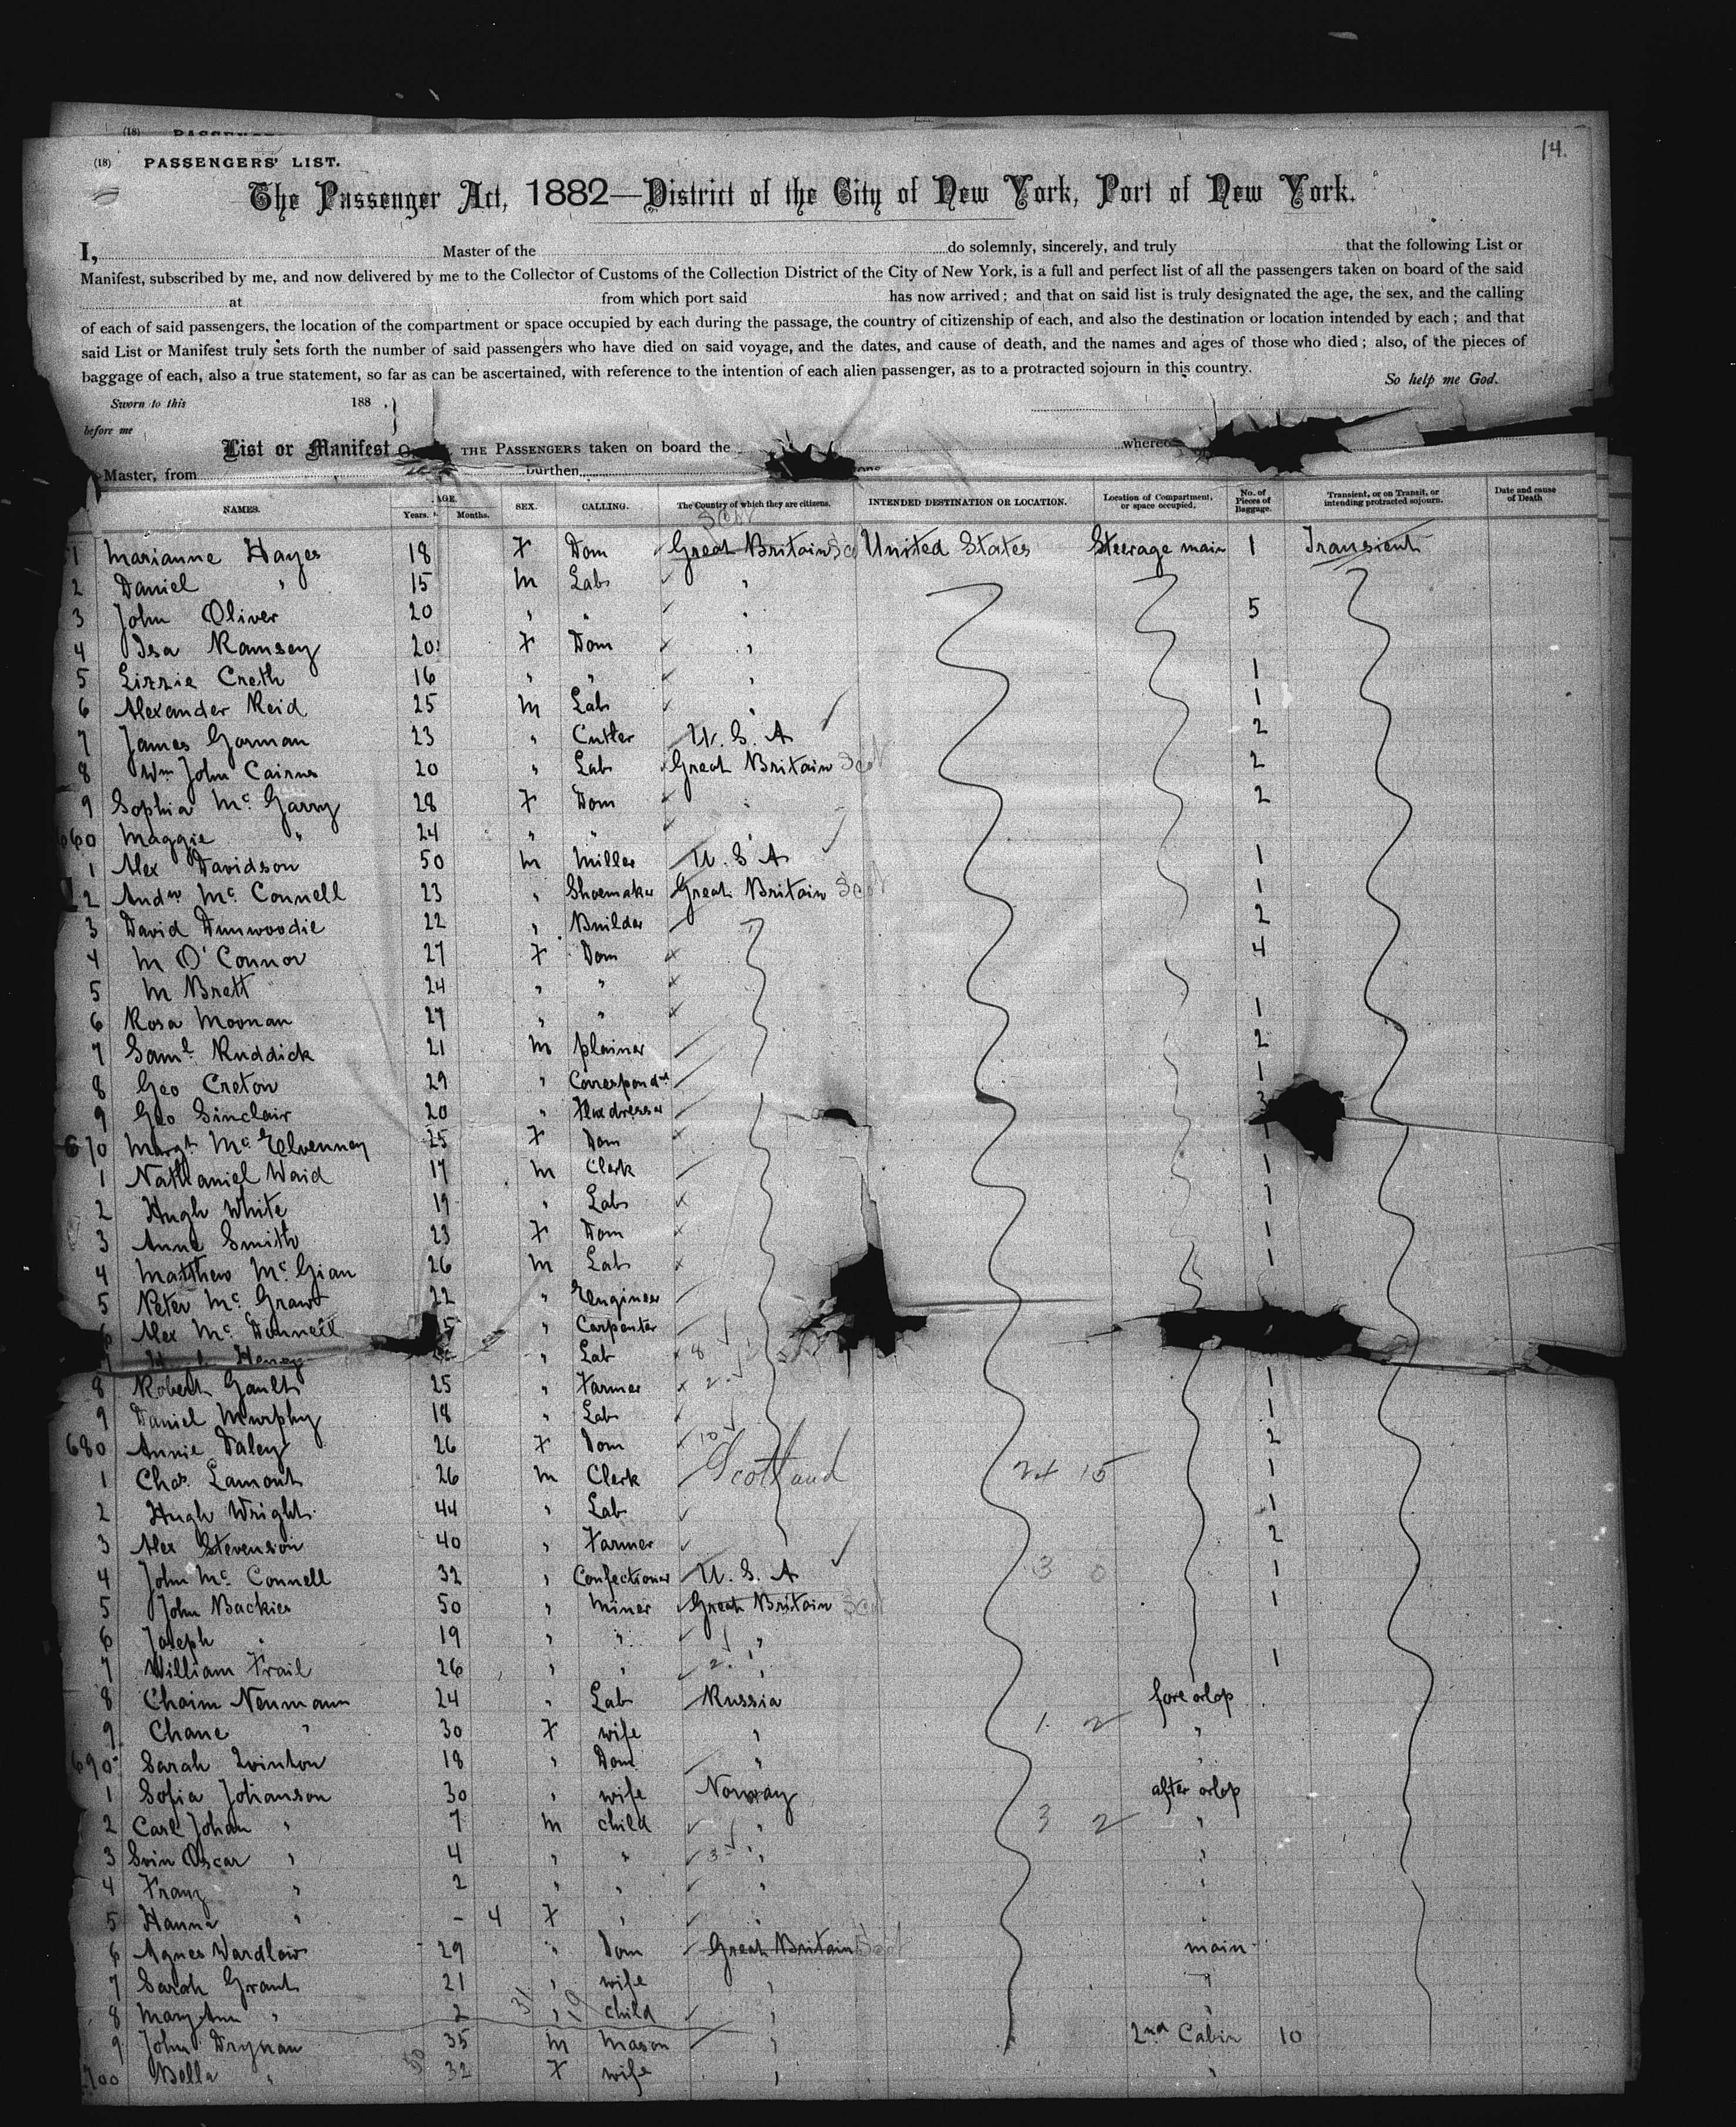 14.
(18) PASSENGERS' LIST.
The Passenger Act, 1882—District of the City of New York, Port of New York.
I, Master of the do solemnly, sincerely, and truly that the following List or
Manifest, subscribed by me, and now delivered by me to the Collector of Customs of the Collection District of the City of New York, is a full and perfect list of all the passengers taken on board of the said
at from which port said has now arrived; and that on said list is truly designated the age, the sex, and the calling
of each of said passengers, the location of the compartment or space occupied by each during the passage, the country of citizenship of each, and also the destination or location intended by each; and that
said List or Manifest truly sets forth the number of said passengers who have died on said voyage, and the dates, and cause of death, and the names and ages of those who died; also, of the pieces of
baggage of each, also a true statement, so far as can be ascertained, with reference to the intention of each alien passenger, as to a protracted sojourn in this country.
So help me God.
Sworn to this 188 .
before me
List or Manifest THE PASSENGERS taken on board the whereo
Master, from burthen
NAMES. AGE. Years. Months. SEX. CALLING. The Country of which they are citizens. INTENDED DESTINATION OR LOCATION. Location of Compartment, or space occupied. No. of Pieces of Baggage. Transient, or on Transit, or intending protracted sojourn. Date and cause of Death
1 Marianne Hayes 18 F Dom Great Britain United States Steerage main 1 Transient
2 Daniel " 15 M Lab "
3 John Oliver 20 " " " 5
4 Isa Ramsey 20 F Dom "
5 Lizzie Creth 16 " " " 1
6 Alexander Reid 25 M Lab " 1
7 James Gorman 23 " Cutler U. S. A 2
8 Wm John Cairns 20 " Lab Great Britain Scot 2
9 Sophia Mc Garry 28 F Dom " 2
660 Maggie " 24 " " "
1 Alex Davidson 50 M Miller U. S A 1
2 Andw Mc Connell 23 " Shoemaker Great Britain Scot 1
3 David Dunwoodie 22 " Builder 2
4 M O'Connor 27 F Dom 4
5 M Brett 24 " "
6 Rosa Moonan 27 " " 1
7 Saml Ruddick 21 M plainer 2
8 Geo Creton 29 " Correspondnt 1
9 Geo Sinclair 20 " Flaxdresser
670 Margt Mc Elvenney 25 F Dom
1 Nathaniel Waid 17 M Clerk 1
2 Hugh White 19 " Lab 1
3 Anne Smith 23 F Dom 1
4 Matthew Mc Gian 26 M Lab 1
5 Peter Mc Graw 22 " Engineer
Alex Mc Donnell " Carpenter
Henry " Lab 8
8 Robert Gault 25 " Farmer 2 1
9 Daniel Murphy 18 " Lab 1
680 Annie Daley 26 F Dom 10 2
1 Chas. Lamont 26 M Clerk Scotland 24 15 1
2 Hugh Wright 44 " Lab 1
3 Alex Stevenson 40 " Farmer 2
4 John Mc Connell 32 " Confectioner U. S. A 3 0 1
5 John Backies 50 " Miner Great Britain Scot 1
6 Joseph " 19 " " "
7 William Frail 26 " " 2 " 1
8 Chaim Neumann 24 " Lab Russia fore orlop
9 Chane " 30 F wife " 1 2 "
690 Sarah Quinton 18 " Dom " "
1 Sofia Johanson 30 " wife Norway after orlop
2 Carl Johan " 7 M child " 3 2 "
3 Svin Oscar " 4 " " 3 " "
4 Franz " 2 " " " "
5 Hanna " - 4 F " " "
6 Agnes Wardlaw 29 " Dom Great Britain Scot main
7 Sarah Grant 21 " wife " "
8 Mary Ann " 2 31 " 19 child " "
9 John Drynan 35 M Mason " 2nd Cabin 10
700 Bella " 50 32 F wife " "